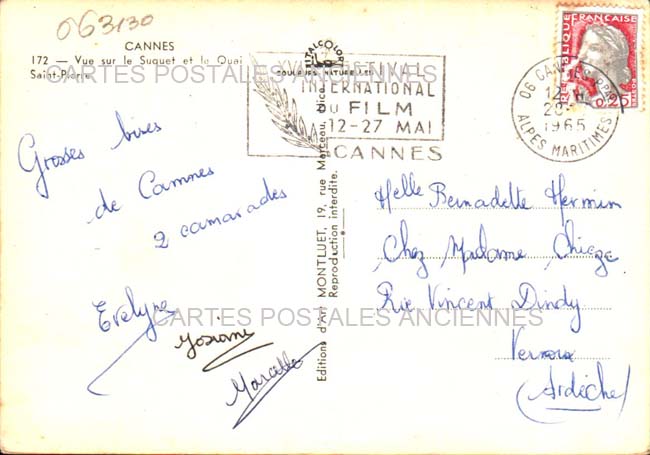 063130
CANNES
172 — Vue sur le Suquet et le Quai
Saint-Pierre
CARTES POSTALES ANCIENNES
ITALCOLOR
COULEURS NATURELLES
FESTIVAL
INTERNATIONAL
DU FILM
12-27 MAI
CANNES
REPUBLIQUE FRANCAISE
0,25
06 CANNES PPAL
12 H
28
1965
ALPES MARITIMES
Grosses bises
de Cannes
2 camarades
Evelyne
Josiane
Marcelle
Editions d'Art MONTLUET, 19, rue Marceau, Nice
Reproduction interdite.
Melle Bernadette Hermin
Chez Madame Chieze
Rue Vincent Dindy
Vernoux
(Ardèche)
CARTES POSTALES ANCIENNES